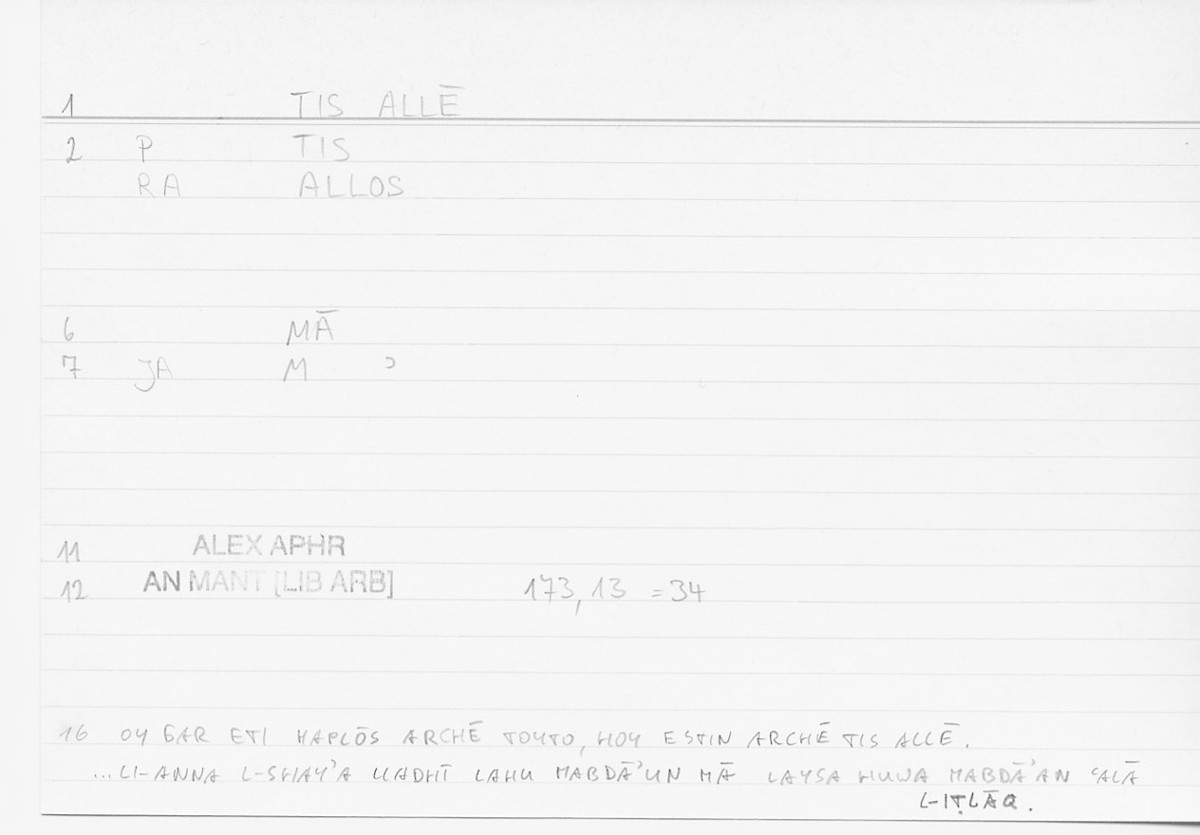 1 TIS ALLĒ
2 P TIS
RA ALLOS
6 MĀ
7 JA M ʾ
11 ALEX APHR
12 AN MANT [LIB ARB] 173,13 =34
16 OY GAR ETI HAPLŌS ARCHĒ TOYTO, HOY ESTIN ARCHĒ TIS ALLĒ.
...LI-ANNA L-SHAY'A LLADHĪ LAHU MABDĀ'UN MĀ LAYSA HUWA MABDĀ'AN ʿALĀ
L-IṬLĀQ.